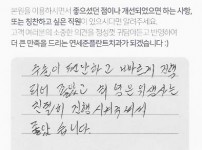 본원을 이용하시면서 좋으셨던 점이나 개선되었으면 하는 사항,
또는 칭찬하고 싶은 직원이 있으시다면 알려주세요.
고객 여러분의 소중한 의견을 정성껏 귀담아듣고 반영하여
더 큰 만족을 드리는 연세준플란트치과가 되겠습니다 :)
수술이 편안하고 나빠르게 진행
되어 좋았고 위생사는
친절히 진행 시켜주셔서
좋았습니다